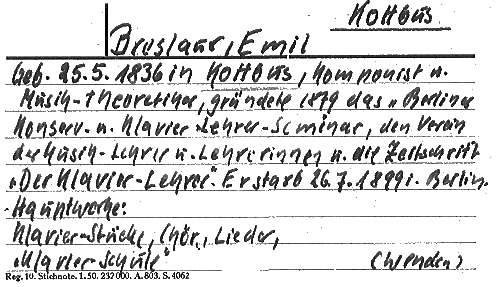 Kottbus
Breslaur, Emil
Geb. 25.5.1836 in Kottbus, Komponist u.
Musik-Theoretiker, gründete 1879 das „Berliner
Konserv. u. Klavier-Lehrer-Seminar, den Verein
der Musik-Lehrer u. Lehrerinnen u. die Zeitschrift
„Der Klavier-Lehrer". Er starb 26.7.1899 i. Berlin.
Hauptwerke:
Klavier-Stücke, Chör., Lieder,
„Klavier-Schule"
(Wenden)
Reg. 10. Stichnote. 1. 50. 232 000. A. 803. S. 4062